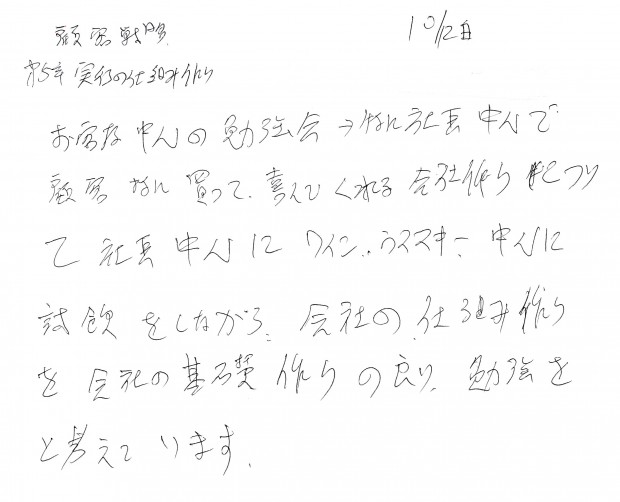 顧客戦略 10/12日
第5章 実行の仕組み作り
お客様 中心の 勉強会 → 社長 中心で
顧客 買って、喜んでくれる 会社作り
て 社長 中心に ワイン、ウイスキー 中心に
試飲 をしながら、会社の 仕組み作り
を 会社の 基礎 作り の 良い 勉強を
と考えて います。